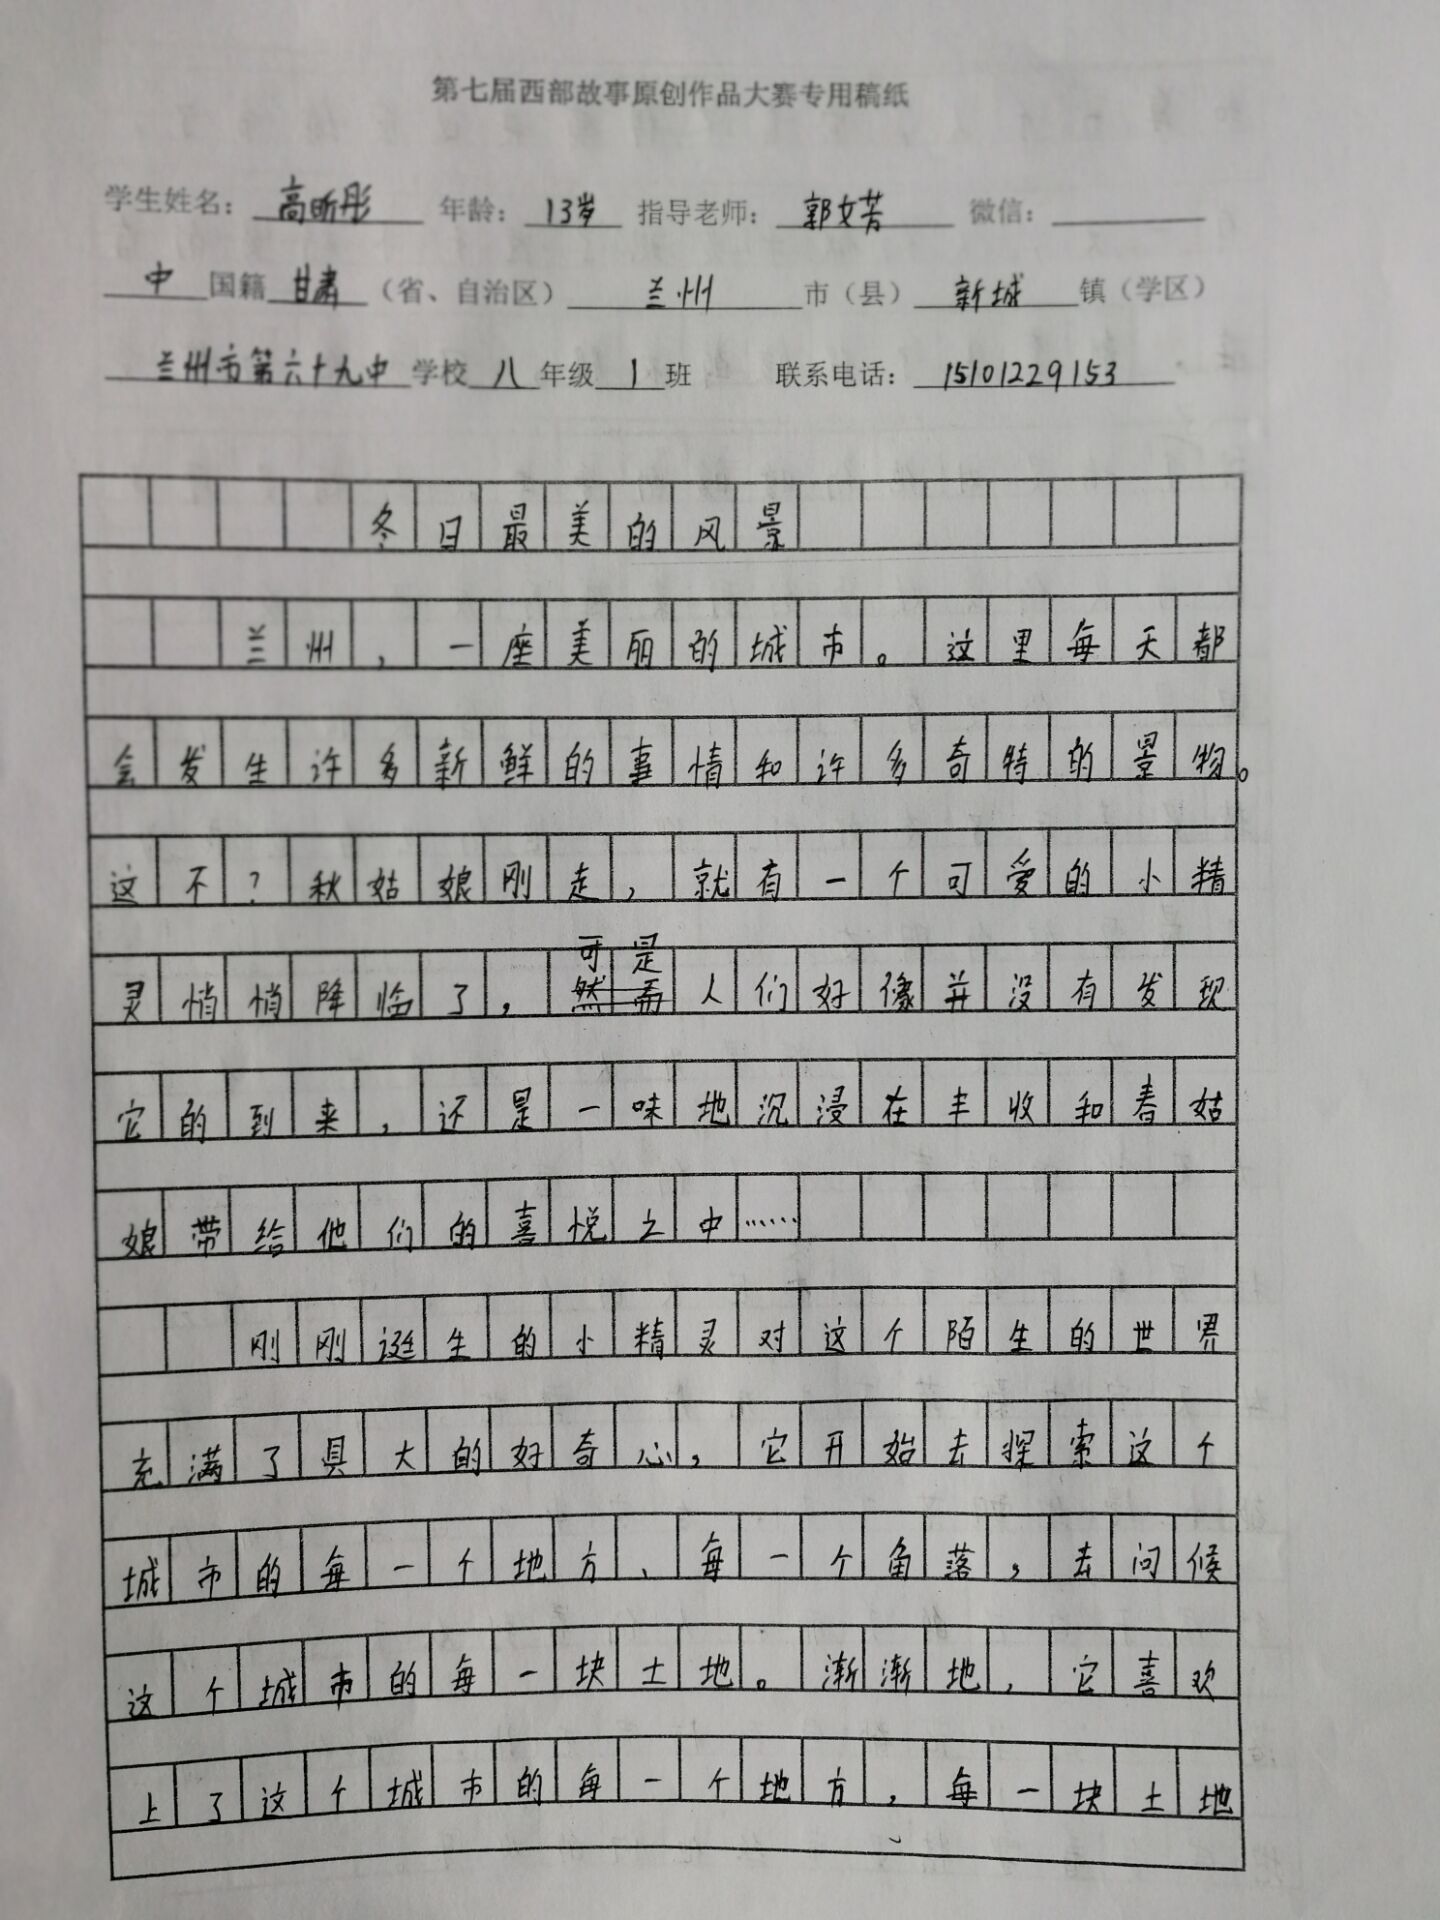 第七届西部故事原创作品大赛专用稿纸
学生姓名：高昕彤 年龄：13岁 指导老师：郭文芳 微信：
中国籍甘肃（省、自治区）兰州市（县）新城镇（学区）
兰州市第六十九中学校八年级1班 联系电话：15101229153
冬日最美的风景
兰州，一座美丽的城市。这里每天都
会发生许多新鲜的事情和许多奇特的景物。
这不？秋姑娘刚走，就有一个可爱的小精
可是
灵悄悄降临了，然而人们好像并没有发现
它的到来，还是一味地沉浸在丰收和春姑
娘带给他们的喜悦之中……
刚刚诞生的小精灵对这个陌生的世界
充满了具大的好奇心，它开始去探索这个
城市的每一个地方、每一个角落，去问候
这个城市的每一块土地。渐渐地，它喜欢
上了这个城市的每一个地方，每一块土地